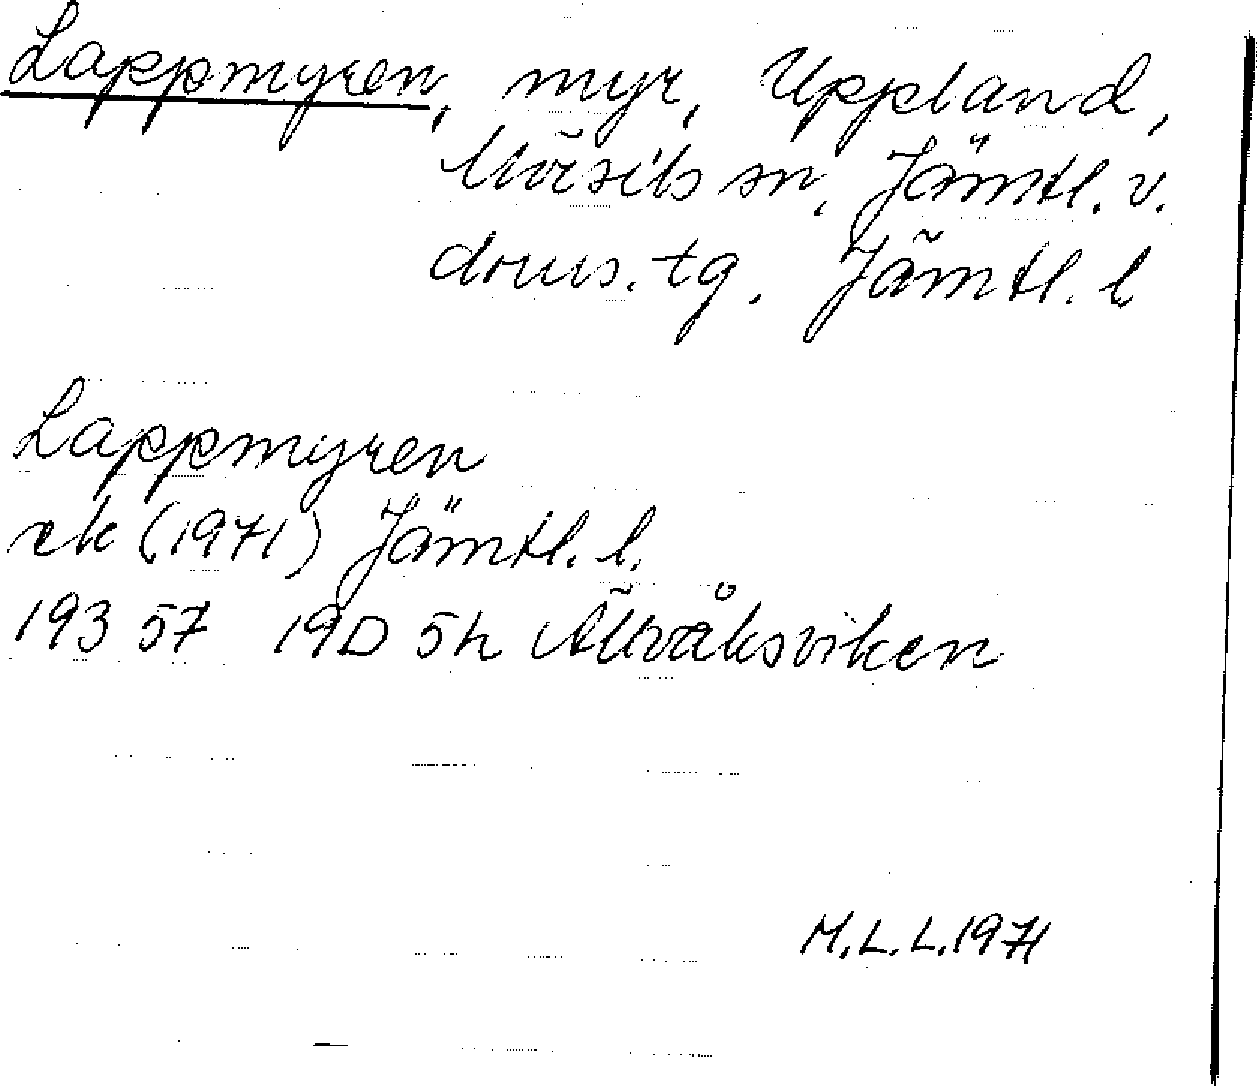 Lappmyren, myr, Uppland,
Mörsils sn, Jämtl. v.
doms. tg. Jämtl. l
Lappmyren
ek (1971) Jämtl. l.
193 57 19D 5h Ällvåksviken
M.L.L. 1971